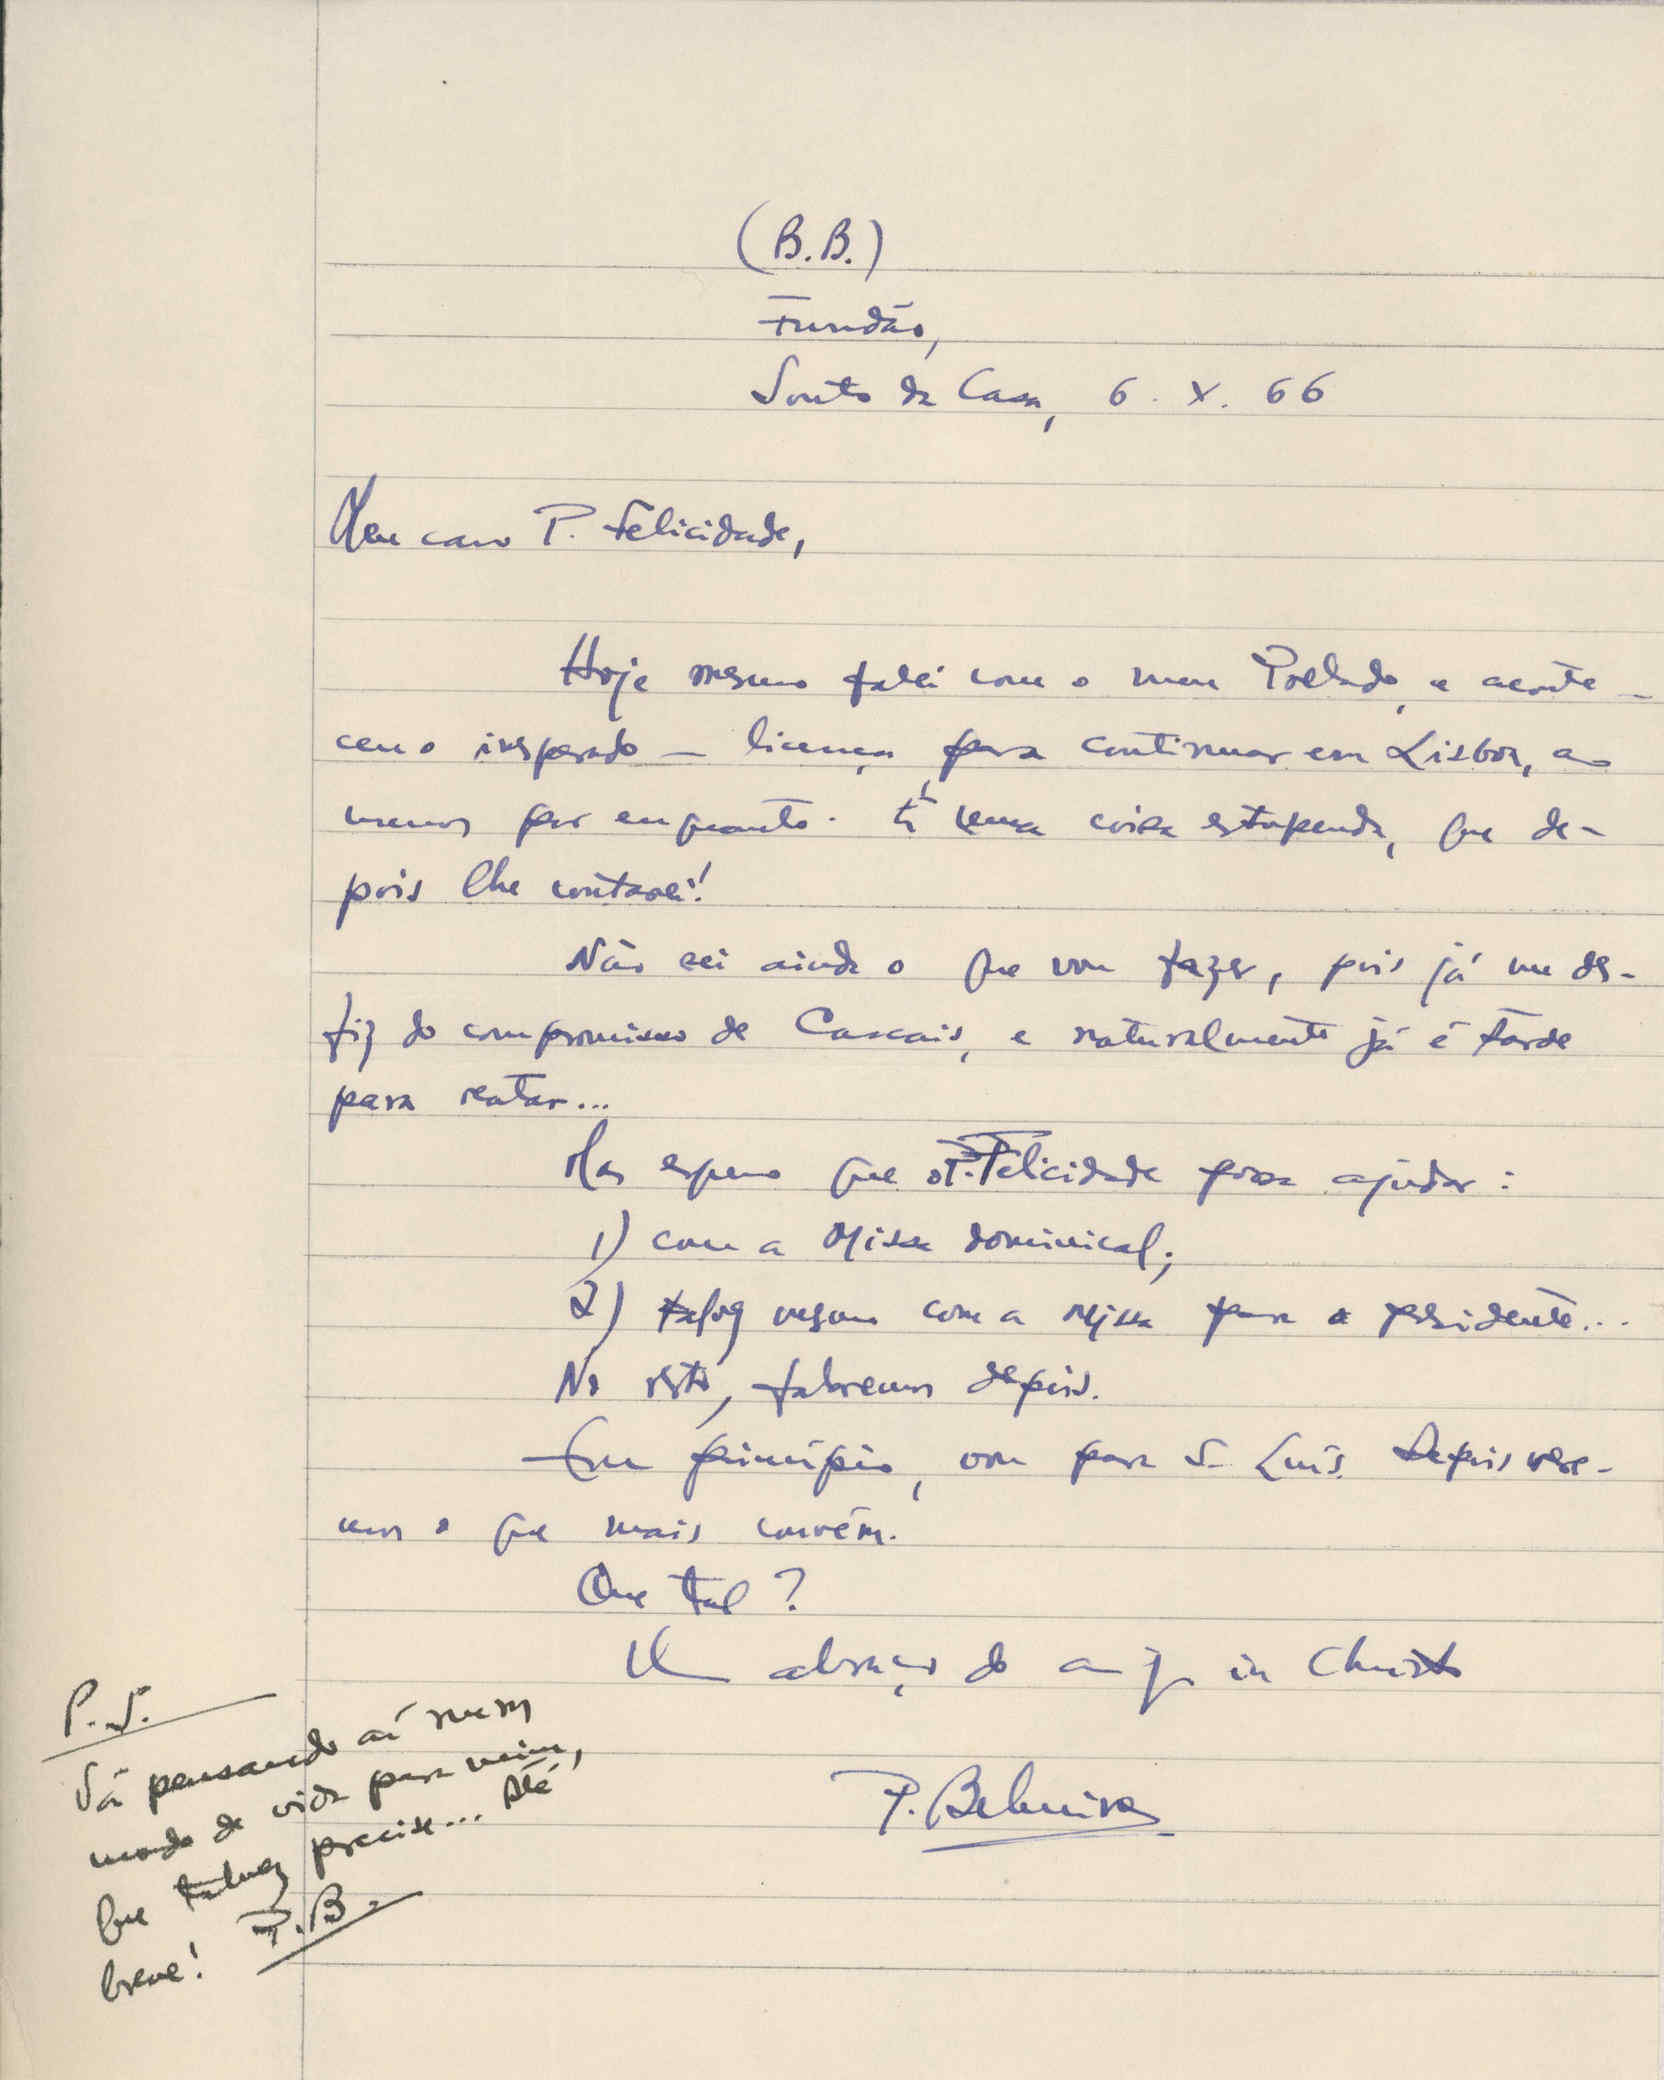 (B.B.)
Fundão,
Souto da Casa, 6. X. 66
Meu caro P. Felicidade,
Hoje mesmo falei com o meu Prelado, e aconte-
ceu o inesperado — licença para continuar em Lisboa, ao
menos por enquanto. É uma coisa estupenda, que de-
pois lhe contarei!
Não sei ainda o que vou fazer, pois já me des-
fiz do compromisso de Cascais, e naturalmente já é tarde
para reatar...
Mas espero que o P. Felicidade possa ajudar:
1) com a Missa dominical;
2) talvez mesmo com a Missa para o presidente...
No resto, falaremos depois.
Em princípio, vou para S. Luís. Depois vere-
mos o que mais convém.
Que tal?
Um abraço do amigo in Christo
P.
P.S.
Vá pensando aí num
modo de vida para mim,
que talvez precise... Até
breve! P.B.